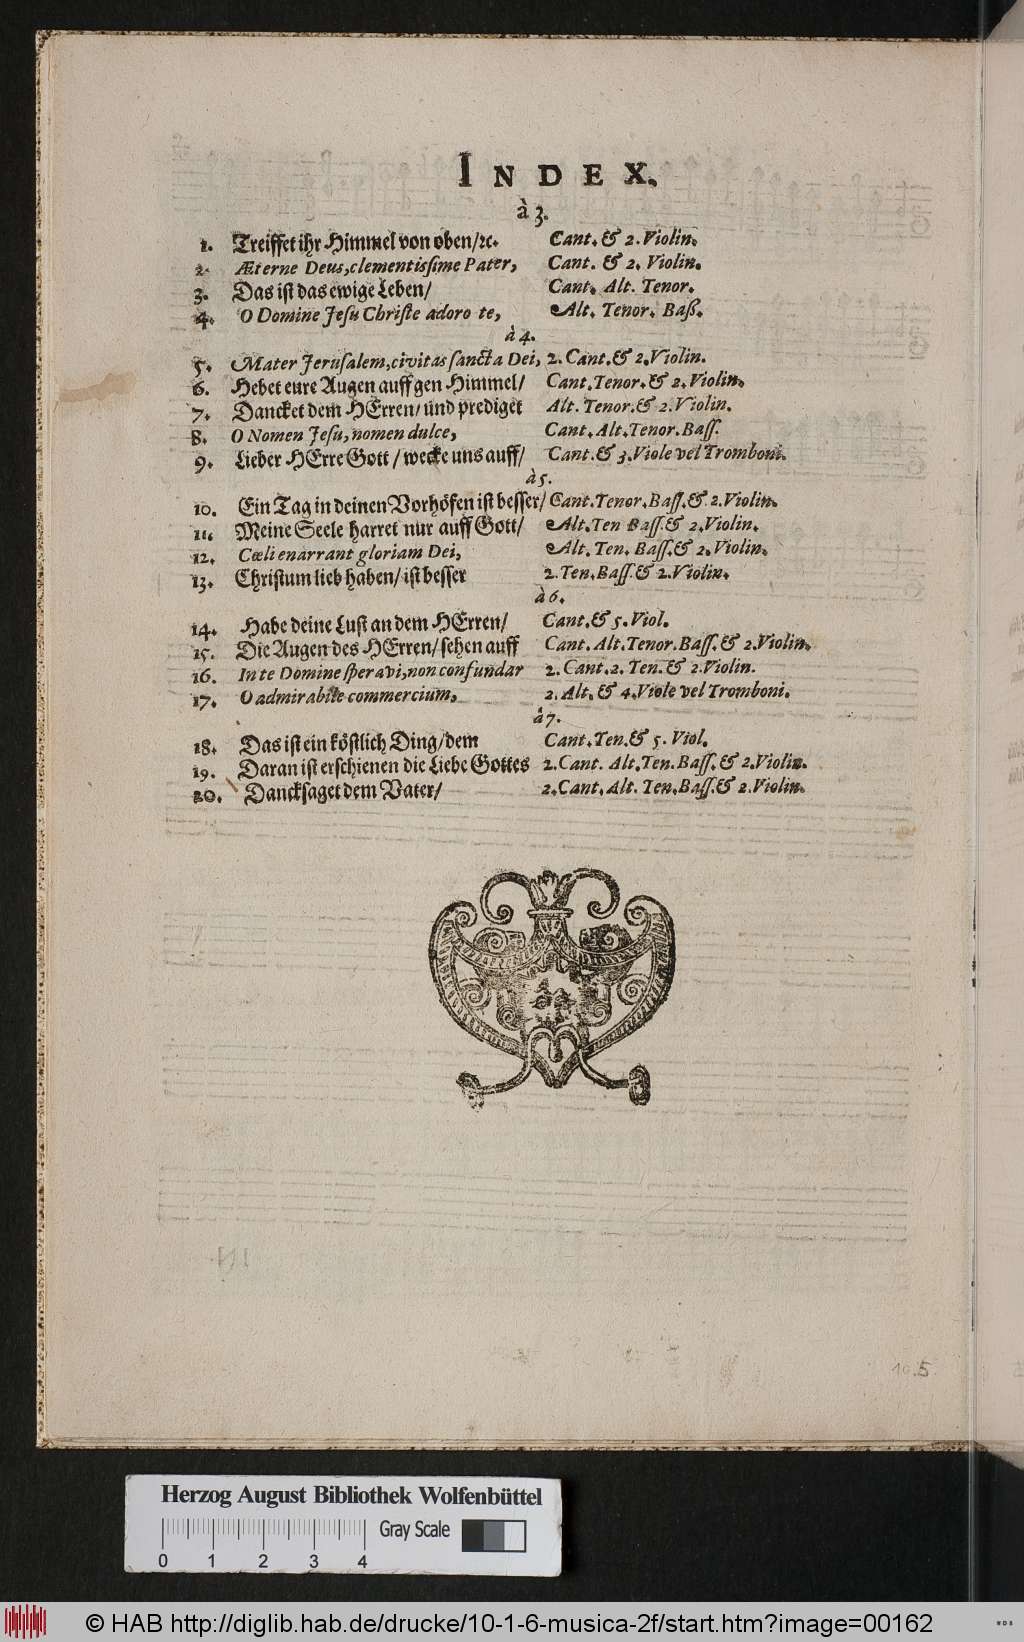 INDEX.
à 3.
1. Treiffet ihr Himmel von oben/ꝛc. Cant. & 2. Violin.
2. Æterne Deus, clementissime Pater, Cant. & 2. Violin.
3. Das ist das ewige Leben/ Cant. Alt. Tenor.
4. O Domine Jesu Christe adoro te, Alt. Tenor. Baß.
à 4.
5. Mater Jerusalem, civitas sancta Dei, 2. Cant. & 2. Violin.
6. Hebet eure Augen auff gen Himmel/ Cant. Tenor. & 2. Violin.
7. Dancket dem HErren/ und prediget Alt. Tenor. & 2. Violin.
8. O Nomen Jesu, nomen dulce, Cant. Alt. Tenor. Bass.
9. Lieber HErre Gott / wecke uns auff/ Cant. & 3. Viole vel Tromboni.
à 5.
10. Ein Tag in deinen Vorhöfen ist besser/ Cant. Tenor. Bass. & 2. Violin.
11. Meine Seele harret nur auff Gott/ Alt. Ten Bass. & 2. Violin.
12. Cœli enarrant gloriam Dei, Alt. Ten. Bass. & 2. Violin.
13. Christum lieb haben/ ist besser 2. Ten. Bass. & 2. Violin.
à 6.
14. Habe deine Lust an dem HErren/ Cant. & 5. Viol.
15. Die Augen des HErren/ sehen auff Cant. Alt. Tenor. Bass. & 2. Violin.
16. In te Domine speravi, non confundar 2. Cant. 2. Ten. & 2. Violin.
17. O admirabile commercium, 2. Alt. & 4. Viole vel Tromboni.
à 7.
18. Das ist ein köstlich Ding/ dem Cant. Ten. & 5. Viol.
19. Daran ist erschienen die Liebe Gottes 2. Cant. Alt. Ten. Bass. & 2. Violin.
20. Dancksaget dem Vater/ 2. Cant. Alt. Ten. Bass. & 2. Violin.
5
Herzog August Bibliothek Wolfenbüttel
Gray Scale
0 1 2 3 4
© HAB http://diglib.hab.de/drucke/10-1-6-musica-2f/start.htm?image=00162